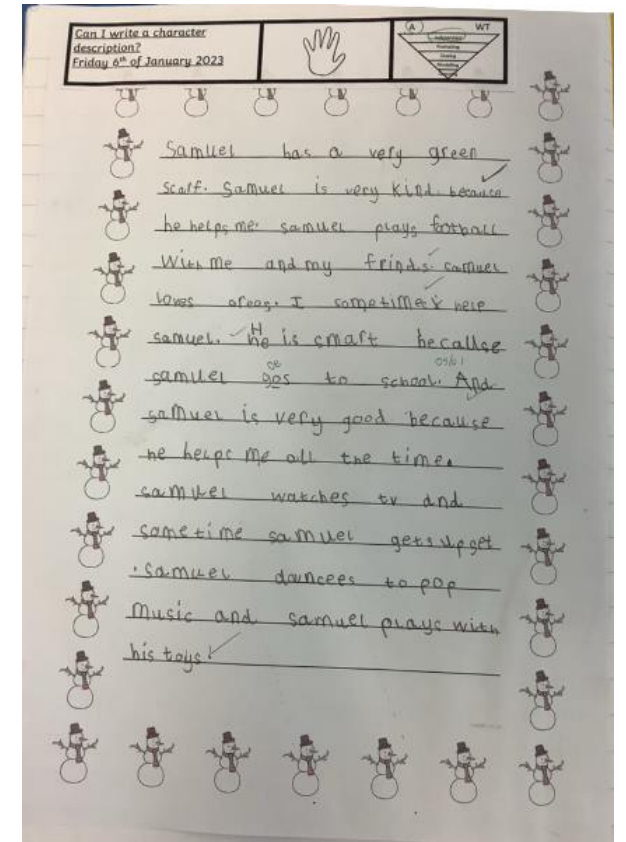 Can I write a character
description?
Friday 6th of January 2023
A WT
Samuel has a very green
scarf. Samuel is very kind because
he helps me. samuel plays football
With me and my frinds. samuel
loves I sometimes help
samuel. He is smart becallse
oe
samuel gos to school. And
samuel is very good because
he helps me all the time.
samuel watches tv and
sometime samuel gets upset
.samuel dauncees to pop
music and samuel plays with
his toys!